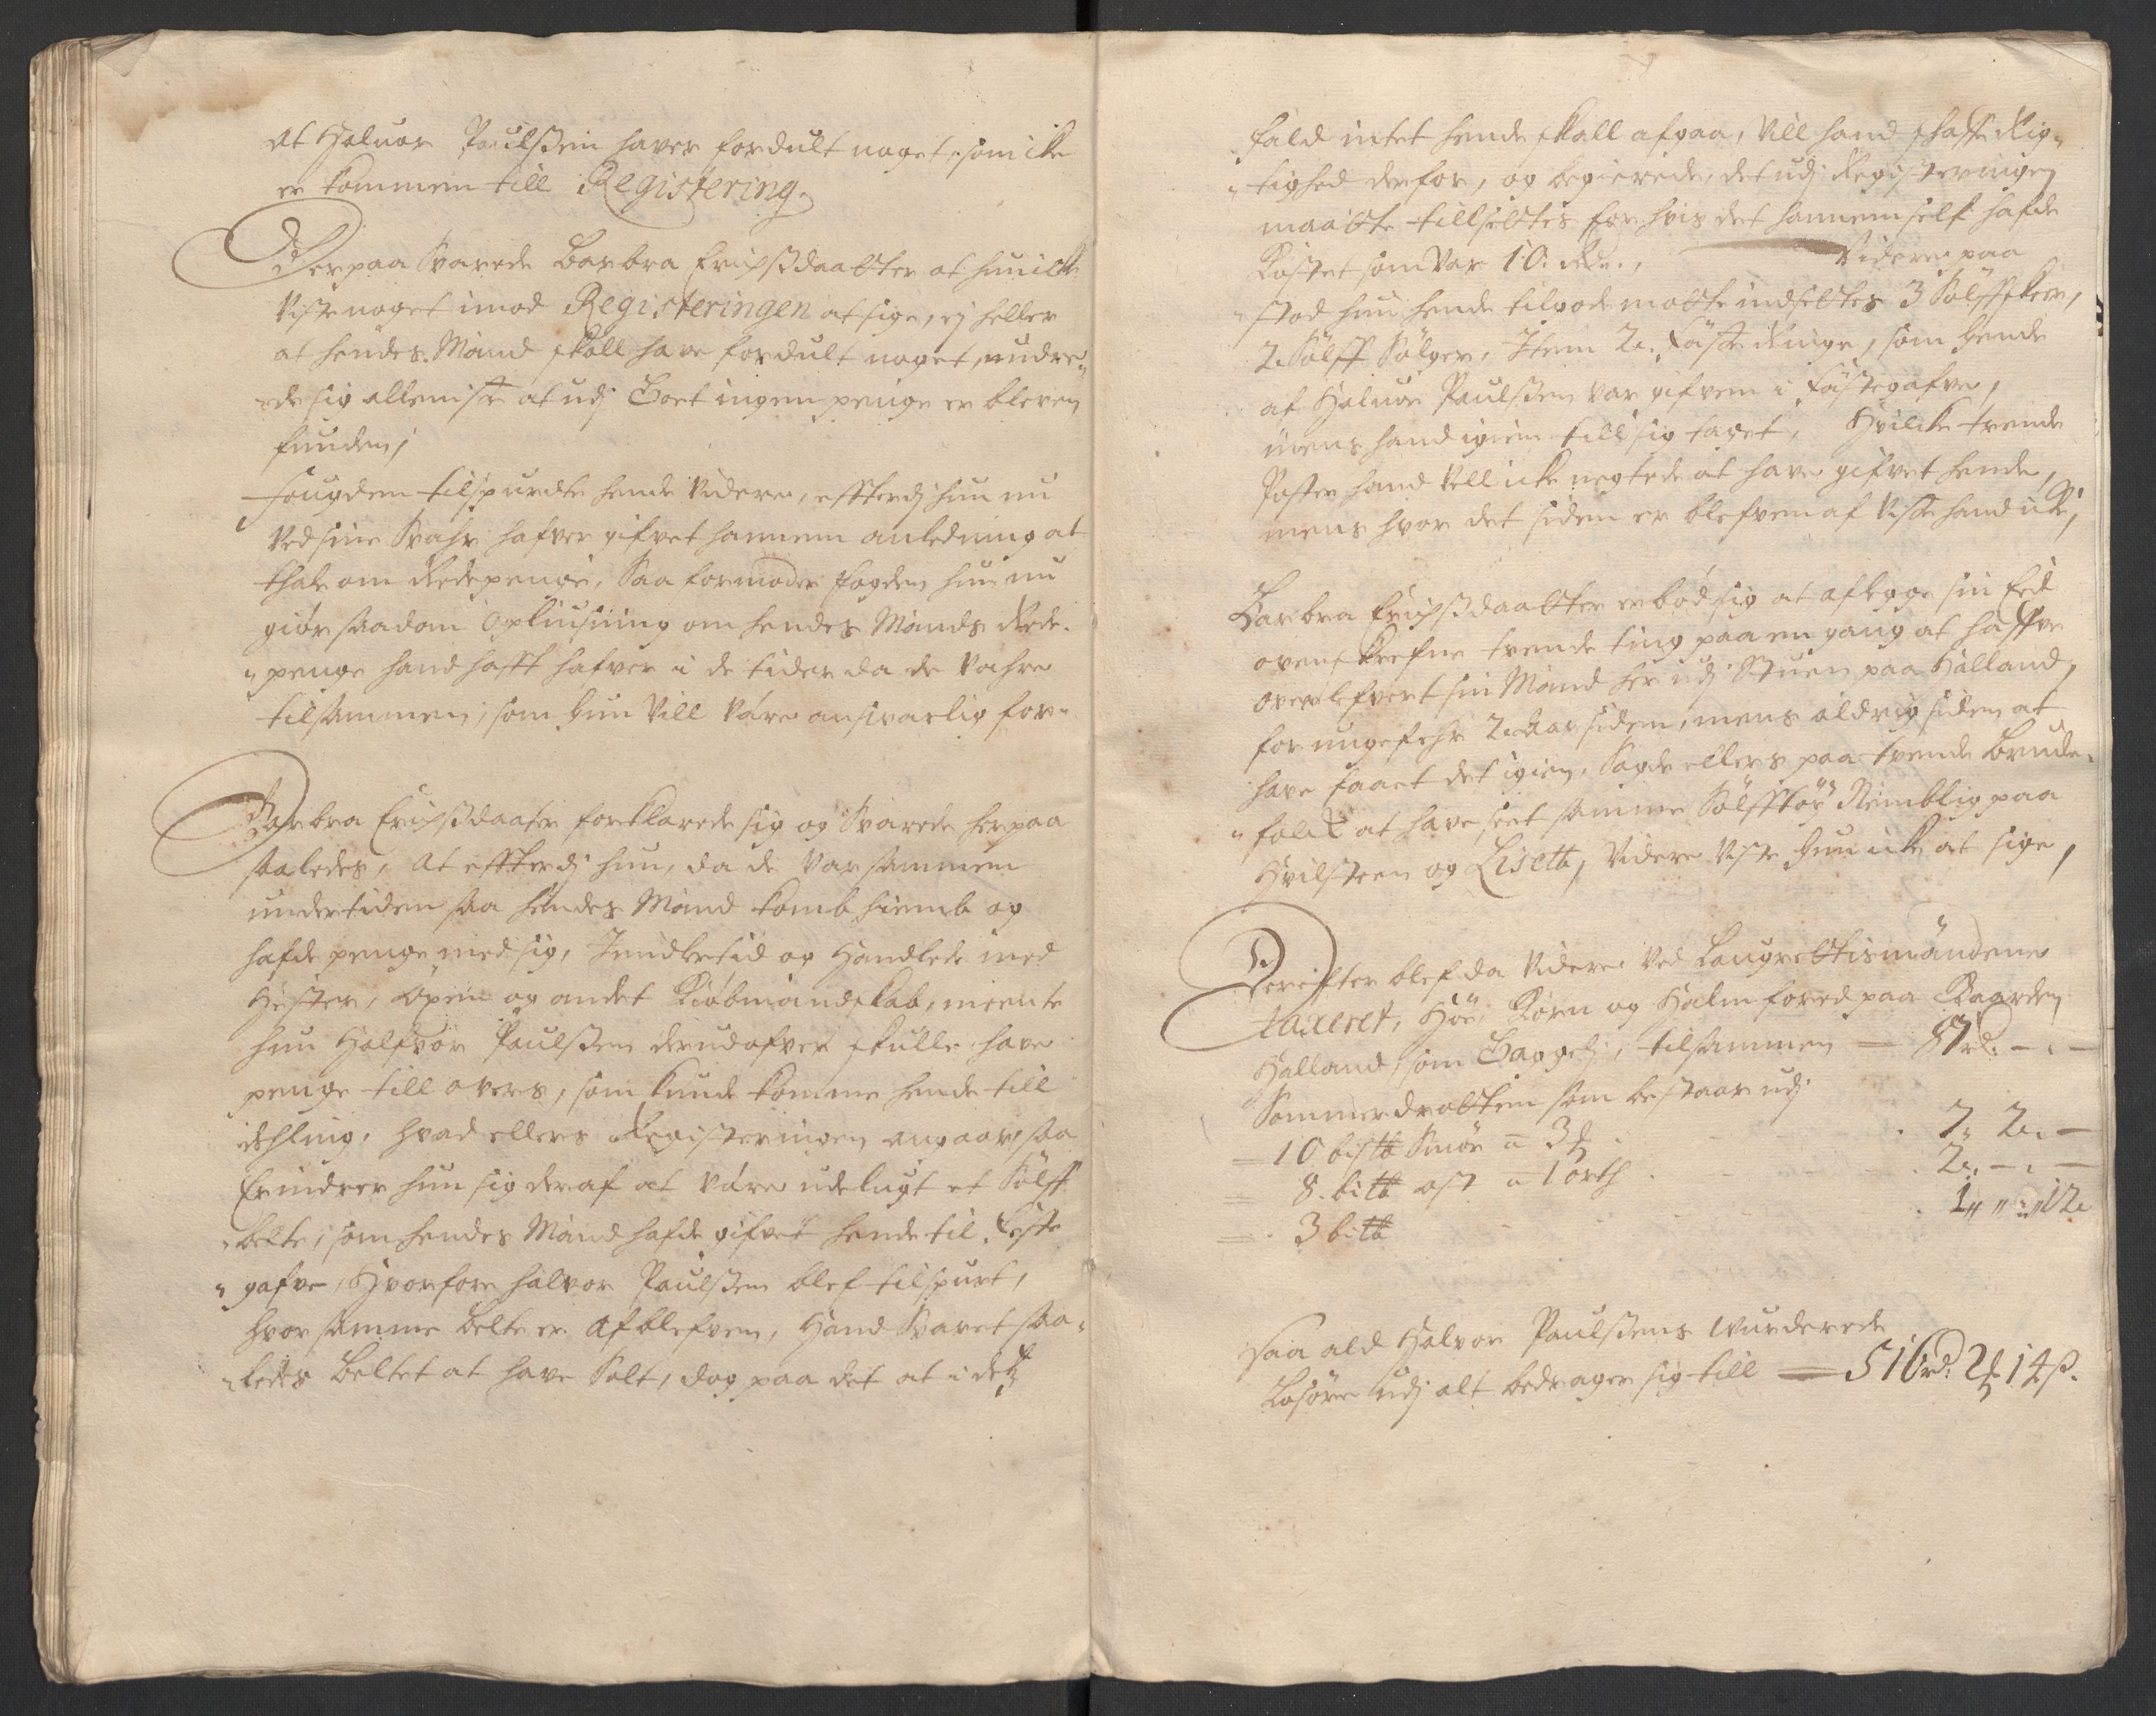 at Haluor Paulssen haver fordult noget, som icke
er kommen till Registering.
Derpaa Svarede Barbra Erichssdaatter at hun icke
Viste noget imod Registeringen at sige, ej heller
at hendes Mand skall have fordult noget, undre-
ede sig alleniste at udj Boet ingen penge er bleven
funden,
Fougden tilspurdte hende Videre, effterdj hun nu
Ved sine Svahr hafver gifvet hannem anledning at
thale om Redepenge, Saa formoder fogden hun nu
giör saadan Opliusning om hendes Mands Rede-
penge hand hafft hafver i de tider da de Vahre
tilsammen, som hun Vill Være ansvarlig for-
Barbra Erichssdaater forklarede sig og Svarede herpaa
saaledes, At effterdj hun, da de Var sammen
undertiden saa hendes Mand komb hiemb og
hafde penge med sig, Imidlertid og Handlede med
Hester, Öxen og andet Kiöbmandskab, meente
hun Halfvor Paulssen derudafver skulle have
penge till overs, som kunde komme hende till
dehling, hvad ellers Registeringen angaar, saa
Erindrer hun sig deraf at Være udelugt et Sölff
belte, som hendes Mand hafde gifvet hende til Feste
gafve, Hvorfore halvor Paulssen blef tilspurt,
hvor samme belte er afblefven, Hand Svaret saa-
ledes beltet at have Solt, dog paa det at i det
fald intet hende skall afgaa, Vill hand skaffe Rig-
tighed derfor, og begierede, det udj Registeringen
maatte tillsettes for hvis det hannem self hafde
Kostet som Var 10. Rdr., Videre paa
stod hun hende tilgode motte indsettes 3 Sölffskeer,
2 Sölff Sölger, Item 2. Fäste Ringe, som hende
af Haluor Paulssen Var gifven i Fästegafve,
mens hand igien till sig taget, Hvilcke trende
Poster hand Vell icke negtede at have gifvet hende,
mens hvor det siden er blefven af Viste hand icke,
Barbra Erichssdaatter erböd sig at aflegge sin Eed
ovenskrefne trende ting paa en gang at haffve
overlefvert sin Mand her udj Stuen paa Halland,
for ungefehr 2 Aar siden, mens aldrig siden at
have faaet det igien, Sagde ellers paa tvende Brude-
folck at have seet samme Sölfftöy Nemblig paa
Hvilsteen og Lisett, Videre Viste hun icke at sige,
Derefter blef da Videre Ved Laugrettismændene
taxeret, Höe, Korn og Halm foered paa Gaarden
Halland, som tilsammen — 87 rd: — : —
Sommerdrotten som bestaar udj
10 biss℔ Smör a 3
7„ 2. —
8. bi℔ ost a 1 orth
2. — . —
3 bi℔
1„ „ : „12
Saa ald Halvor Paulssens Wurderede
Lösöre udj alt bedrager sig till — 516 rd: 2 14 ß.